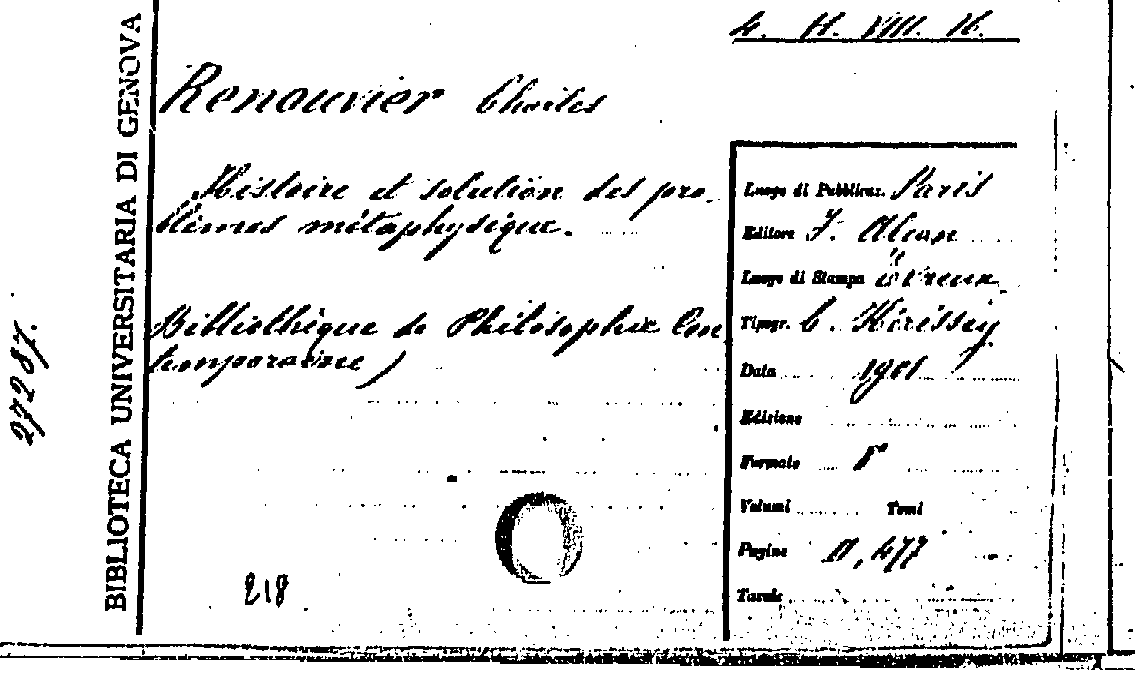 4. H. VIII. 16.
Renouvier Charles
Histoire et solution des pro-
blèmes métaphysique.
Bibliothèque de Philosophie Con
temporaine)
218
Luogo di Pubblicaz. Paris
Editore F. Alcan
Luogo di Stampa Évreux
Tipogr. C. Hérissey
Data 1901
Edizione
Formato 8°
Volumi Tomi
Pagine II, 477
Tavole
BIBLIOTECA UNIVERSITARIA DI GENOVA
27287.